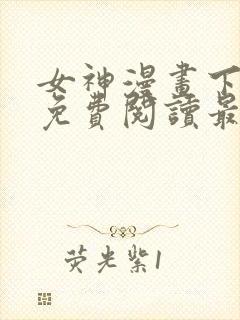 女神漫畫下
免費閱讀最
荧光紫1